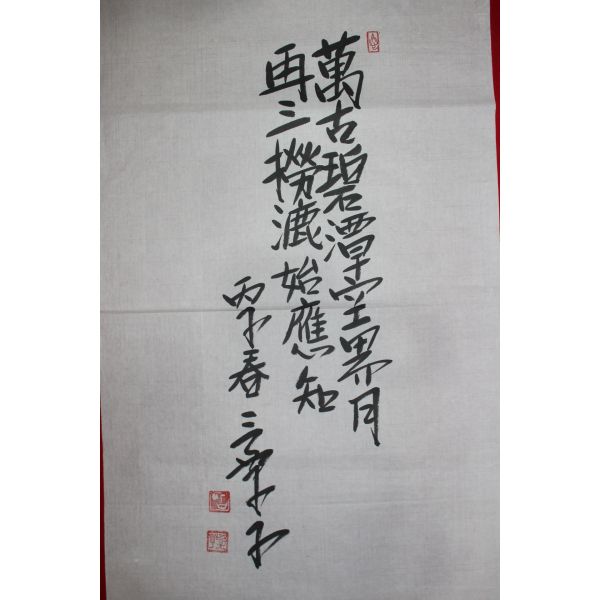 萬古碧潭空界月
再三撈漉始應知
丙子春